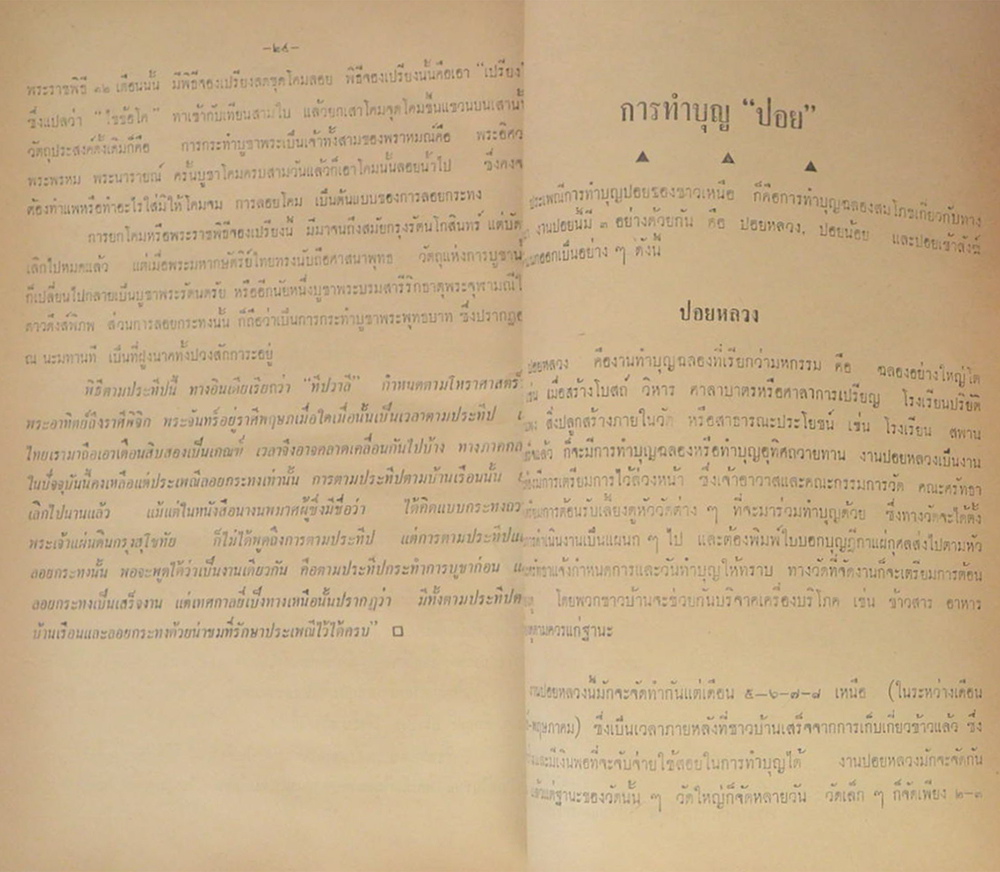 —๒๔—
พระราชพิธี ๑๒ เดือนนั้น มีพิธีจองเปรียงลดชุดโคมลอย พิธีจองเปรียงนั้นคือเอา "เปรียง"
ซึ่งแปลว่า "ไขข้อโค" ทาเข้ากับเทียนสามใบ แล้วยกเสาโคมจุดโคมขึ้นแขวนบนเสานั้
วัตถุประสงค์ดั้งเดิมก็คือ การกระทำบูชาพระเป็นเจ้าทั้งสามของพราหมณ์คือ พระอิศว
พระพรหม พระนารายณ์ ครั้นบูชาโคมครบสามวันแล้วก็เอาโคมนั้นลอยน้ำไป ซึ่งคงจ
ต้องทำแพหรือทำอะไรใส่มิให้โคมจม การลอยโคม เป็นต้นแบบของการลอยกระทง
การยกโคมหรือพระราชพิธีจองเปรียงนี้ มีมาจนถึงสมัยกรุงรัตนโกสินทร์ แต่บัด
เลิกไปหมดแล้ว แต่เมื่อพระมหากษัตริย์ไทยทรงนับถือศาสนาพุทธ วัตถุแห่งการบูชานั
ก็เปลี่ยนไปกลายเป็นบูชาพระรัตนตรัย หรืออีกนัยหนึ่งบูชาพระบรมสารีริกธาตุพระจุฬามณีใ
ดาวดึงส์พิภพ ส่วนการลอยกระทงนั้น ก็ถือว่าเป็นการกระทำบูชาพระพุทธบาท ซึ่งปรากฏอ
ณ นะมทานที เป็นที่ฝูงนาคทั้งปวงสักการะอยู่
พิธีตามประทีปนี้ ทางอินเดียเรียกว่า "ทีปวาลี" กำหนดตามโหราศาสตร์
พระอาทิตย์ถึงราศีพิจิก พระจันทร์อยู่ราศีพฤษภเมื่อใดเมื่อนั้นเป็นเวลาตามประทีป
ไทยเรามาถือเอาเดือนสิบสองเป็นเกณฑ์ เวลาจึงอาจคลาดเคลื่อนกันไปบ้าง ทางภาคกล
ในปัจจุบันนี้คงเหลือแต่ประเพณีลอยกระทงเท่านั้น การตามประทีปตามบ้านเรือนนั้น
เลิกไปนานแล้ว แม้แต่ในหนังสือนางนพมาศผู้ซึ่งมีชื่อว่า ได้คิดแบบกระทงถว
พระเจ้าแผ่นดินกรุงสุโขทัย ก็ไม่ได้พูดถึงการตามประทีป แต่การตามประทีปแ
ลอยกระทงนั้น พอจะพูดได้ว่าเป็นงานเดียวกัน คือตามประทีปกระทำการบูชาก่อน แ
ลอยกระทงเป็นเสร็จงาน แต่เทศกาลยี่เป็งทางเหนือนั้นปรากฏว่า มีทั้งตามประทีปต
บ้านเรือนและลอยกระทงด้วยน่าชมที่รักษาประเพณีไว้ได้ครบ" □
การทำบุญ "ปอย"
▲ ▲ ▲
ประเพณีการทำบุญปอยของชาวเหนือ ก็คือการทำบุญฉลองสมโภชเกี่ยวกับทาง
งานปอยนี้มี ๓ อย่างด้วยกัน คือ ปอยหลวง, ปอยน้อย และปอยเข้าสังฆ์
ออกเป็นอย่าง ๆ ดังนี้
ปอยหลวง
ปอยหลวง คืองานทำบุญฉลองที่เรียกว่ามหกรรม คือ ฉลองอย่างใหญ่โต
เช่น เมื่อสร้างโบสถ์ วิหาร ศาลาบาตรหรือศาลาการเปรียญ โรงเรียนปริยัติ
สิ่งปลูกสร้างภายในวัด หรือสาธารณะประโยชน์ เช่น โรงเรียน สพาน
แล้ว ก็จะมีการทำบุญฉลองหรือทำบุญอุทิศถวายทาน งานปอยหลวงเป็นงาน
ต้องมีการเตรียมการไว้ล่วงหน้า ซึ่งเจ้าอาวาสและคณะกรรมการวัด คณะศรัทธา
เตรียมการต้อนรับเลี้ยงดูหัววัดต่าง ๆ ที่จะมาร่วมทำบุญด้วย ซึ่งทางวัดจะได้ตั้ง
การดำเนินงานเป็นแผนก ๆ ไป และต้องพิมพ์ใบบอกบุญฎีกาแผ่กุศลส่งไปตามหัว
แจ้งกำหนดการและวันทำบุญให้ทราบ ทางวัดที่จัดงานก็จะเตรียมการต้อน
โดยพวกชาวบ้านจะช่วยกันบริจาคเครื่องบริโภค เช่น ข้าวสาร อาหาร
ตามควรแก่ฐานะ
งานปอยหลวงนี้มักจะจัดทำกันแต่เดือน ๕—๖—๗—๘ เหนือ (ในระหว่างเดือน
พฤษภาคม) ซึ่งเป็นเวลาภายหลังที่ชาวบ้านเสร็จจากการเก็บเกี่ยวข้าวแล้ว ซึ่ง
และมีเงินพอที่จะจับจ่ายใช้สอยในการทำบุญได้ งานปอยหลวงมักจะจัดกัน
แล้วแต่ฐานะของวัดนั้น ๆ วัดใหญ่ก็จัดหลายวัน วัดเล็ก ๆ ก็จัดเพียง ๒—๓